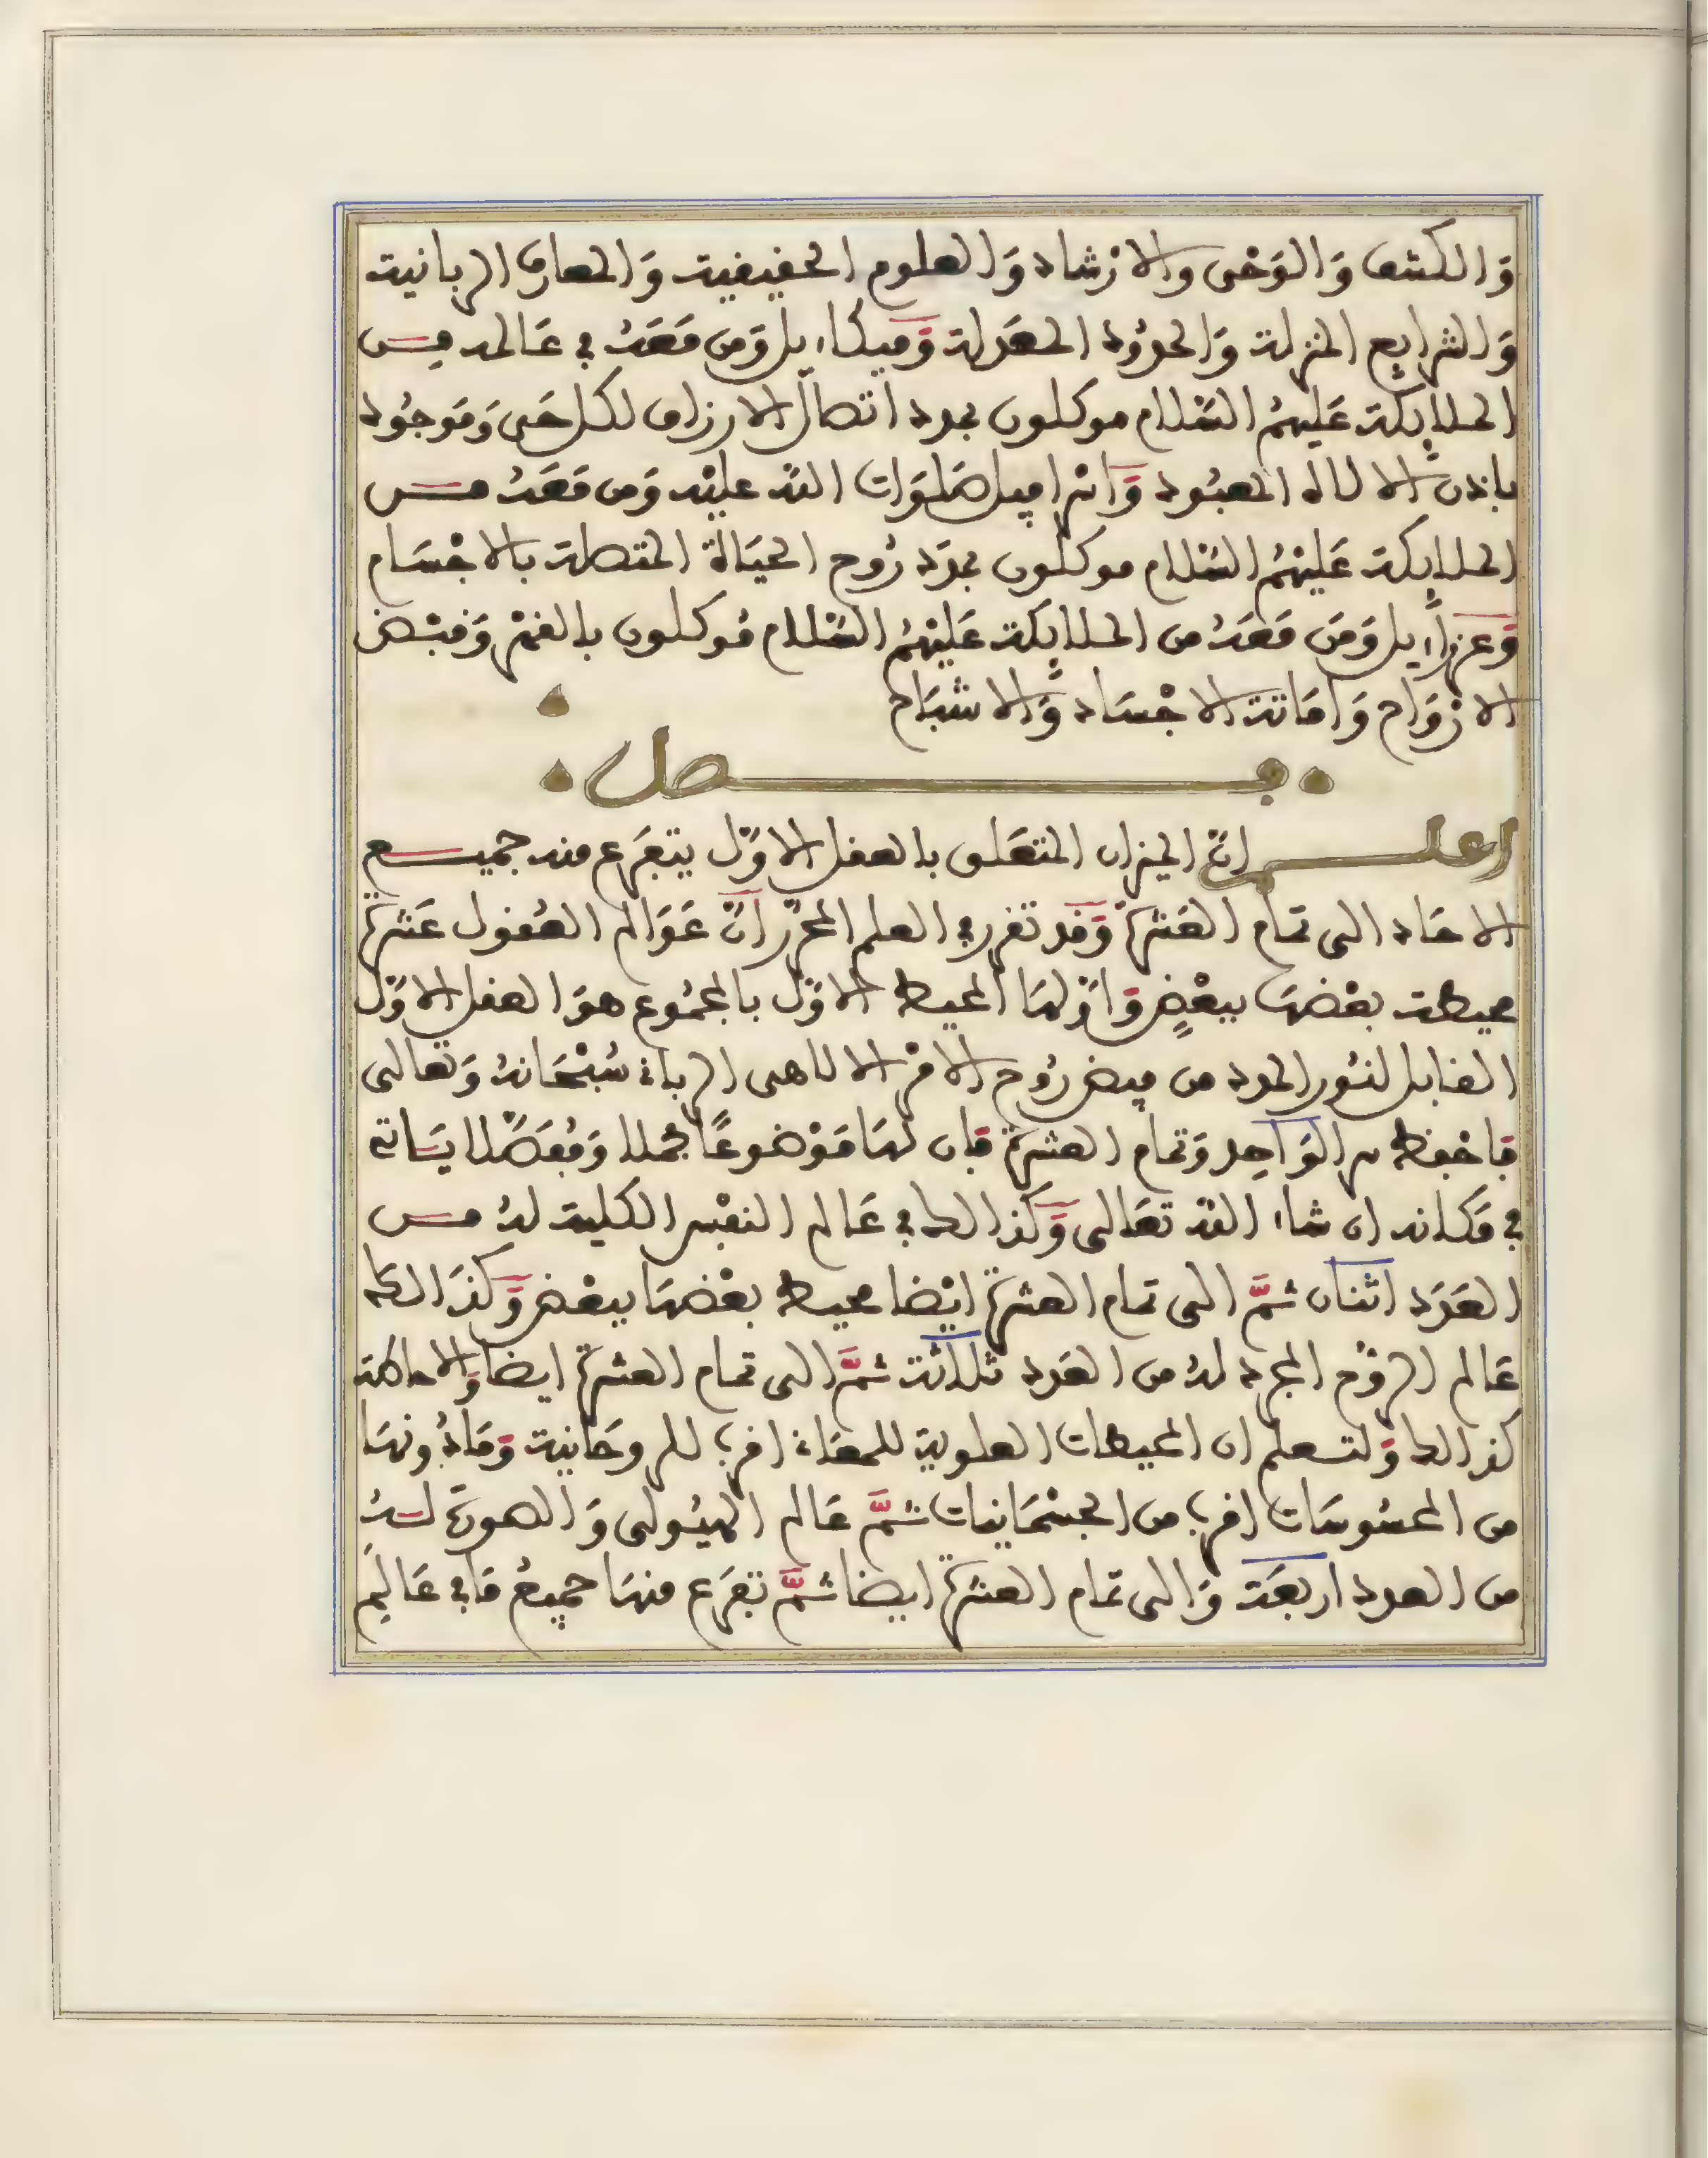 وَالكشف وَالوَحْى والارْشاد وَالعلوم الحقيقية وَالمعارف الربانية
وَالشرايع المنزلة وَالحدُود المعَدلة وَميكاءيل وَمن مَعَهُ في عَالمه مِن
الملايكة عَليهمُ السَّلام موكلون بمدد اتصال الارزاق لكل حَى وَمَوجُود
باذن الالاه المعبُود وَاسْرافيل صَلوَات اللَّه عليْه وَمن مَعَهُ من
الملايكة عَليْهمُ السَّلام موكلون بمدَد رُوح الحيَاة المتصلة بالاجْسَام
وَعزراءيل وَمَن مَعَهُ من الملايكة عَليْهمُ السَّلام مُوكلون بالقهْر وَقبْض
الارْوَاح وَامَاتة الاجْسَاد وَالاشبَاح
فصل
اعلم انّ الميزان المتعَلق بالعقل الاوّل يتفَرع منه جميع
الاحَاد الى تمام العَشرة وَقد تقرر في العلم المحرّر انّ عَوَالم العُقول عَشرة
محيطة بعْضهَا ببعْضٍ وَاوّلهَا المحيط الاوّل بالمجمُوع هوَ العقل الاوّل
القابل لنُور المدد من فيض رُوح الامْر الالاهى الربانى سُبْحَانهُ وَتعالى
فاحْفظ سر الوَاحِد وَتمام العشرة فان لهَا مَوْضوعًا مجملا وَمُفَصَّلا يَاتى
في مَكانه ان شاء اللَّه تعَالى وَكذالك في عَالم النفْس الكلية لهُ من
العَدَد اثنان ثمَّ الى تمام العشرة ايْضا محيط بعْضهَا ببعْض وَكذَالك
عَالم الرّوْح المجرد لهُ من العَدد ثلاثة ثمَّ الى تمام العشرة ايضا وَالاحاطة
كذالك وَلتعلم ان المحيطات العلوية للمعَانى اقرب للروحَانية وَمَا دُونهَا
من المحسُوسَات اقرب من الجسْمَانيات ثمَّ عَالم الهيُولى وَالصورَة لهُ
من العدد اربعَة وَالى تمام العشرة ايضا ثمَّ تفرَع منهَا جميعُ مَا في عَالِم